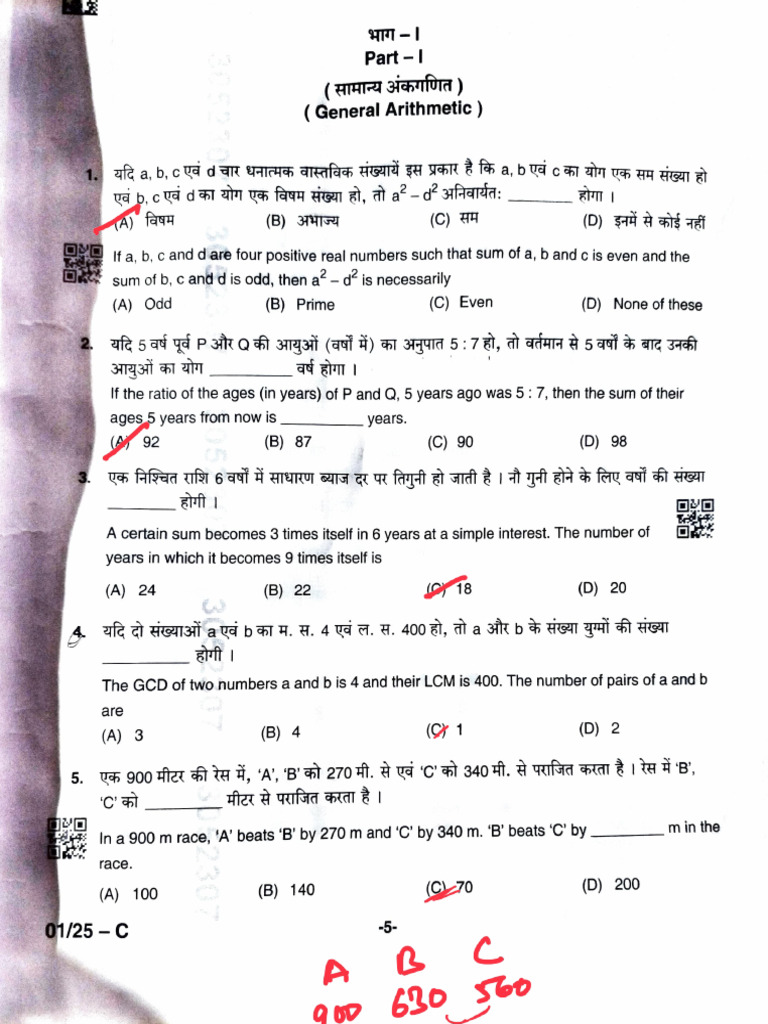 भाग – I
Part – I
( सामान्य अंकगणित )
( General Arithmetic )
1. यदि a, b, c एवं d चार धनात्मक वास्तविक संख्यायें इस प्रकार है कि a, b एवं c का योग एक सम संख्या हो
एवं b, c एवं d का योग एक विषम संख्या हो, तो a² – d² अनिवार्यतः ________ होगा ।
(A) विषम (B) अभाज्य (C) सम (D) इनमें से कोई नहीं
If a, b, c and d are four positive real numbers such that sum of a, b and c is even and the
sum of b, c and d is odd, then a² – d² is necessarily
(A) Odd (B) Prime (C) Even (D) None of these
2. यदि 5 वर्ष पूर्व P और Q की आयुओं (वर्षों में) का अनुपात 5 : 7 हो, तो वर्तमान से 5 वर्षों के बाद उनकी
आयुओं का योग __________ वर्ष होगा ।
If the ratio of the ages (in years) of P and Q, 5 years ago was 5 : 7, then the sum of their
ages 5 years from now is __________ years.
(A) 92 (B) 87 (C) 90 (D) 98
3. एक निश्चित राशि 6 वर्षों में साधारण ब्याज दर पर तिगुनी हो जाती है । नौ गुनी होने के लिए वर्षों की संख्या
________ होगी ।
A certain sum becomes 3 times itself in 6 years at a simple interest. The number of
years in which it becomes 9 times itself is
(A) 24 (B) 22 (C) 18 (D) 20
4. यदि दो संख्याओं a एवं b का म. स. 4 एवं ल. स. 400 हो, तो a और b के संख्या युग्मों की संख्या
__________ होगी ।
The GCD of two numbers a and b is 4 and their LCM is 400. The number of pairs of a and b
are
(A) 3 (B) 4 (C) 1 (D) 2
5. एक 900 मीटर की रेस में, ‘A’, ‘B’ को 270 मी. से एवं ‘C’ को 340 मी. से पराजित करता है । रेस में ‘B’,
‘C’ को _________ मीटर से पराजित करता है ।
In a 900 m race, ‘A’ beats ‘B’ by 270 m and ‘C’ by 340 m. ‘B’ beats ‘C’ by _________ m in the
race.
(A) 100 (B) 140 (C) 70 (D) 200
01/25 – C -5-
A B C
900 630 560